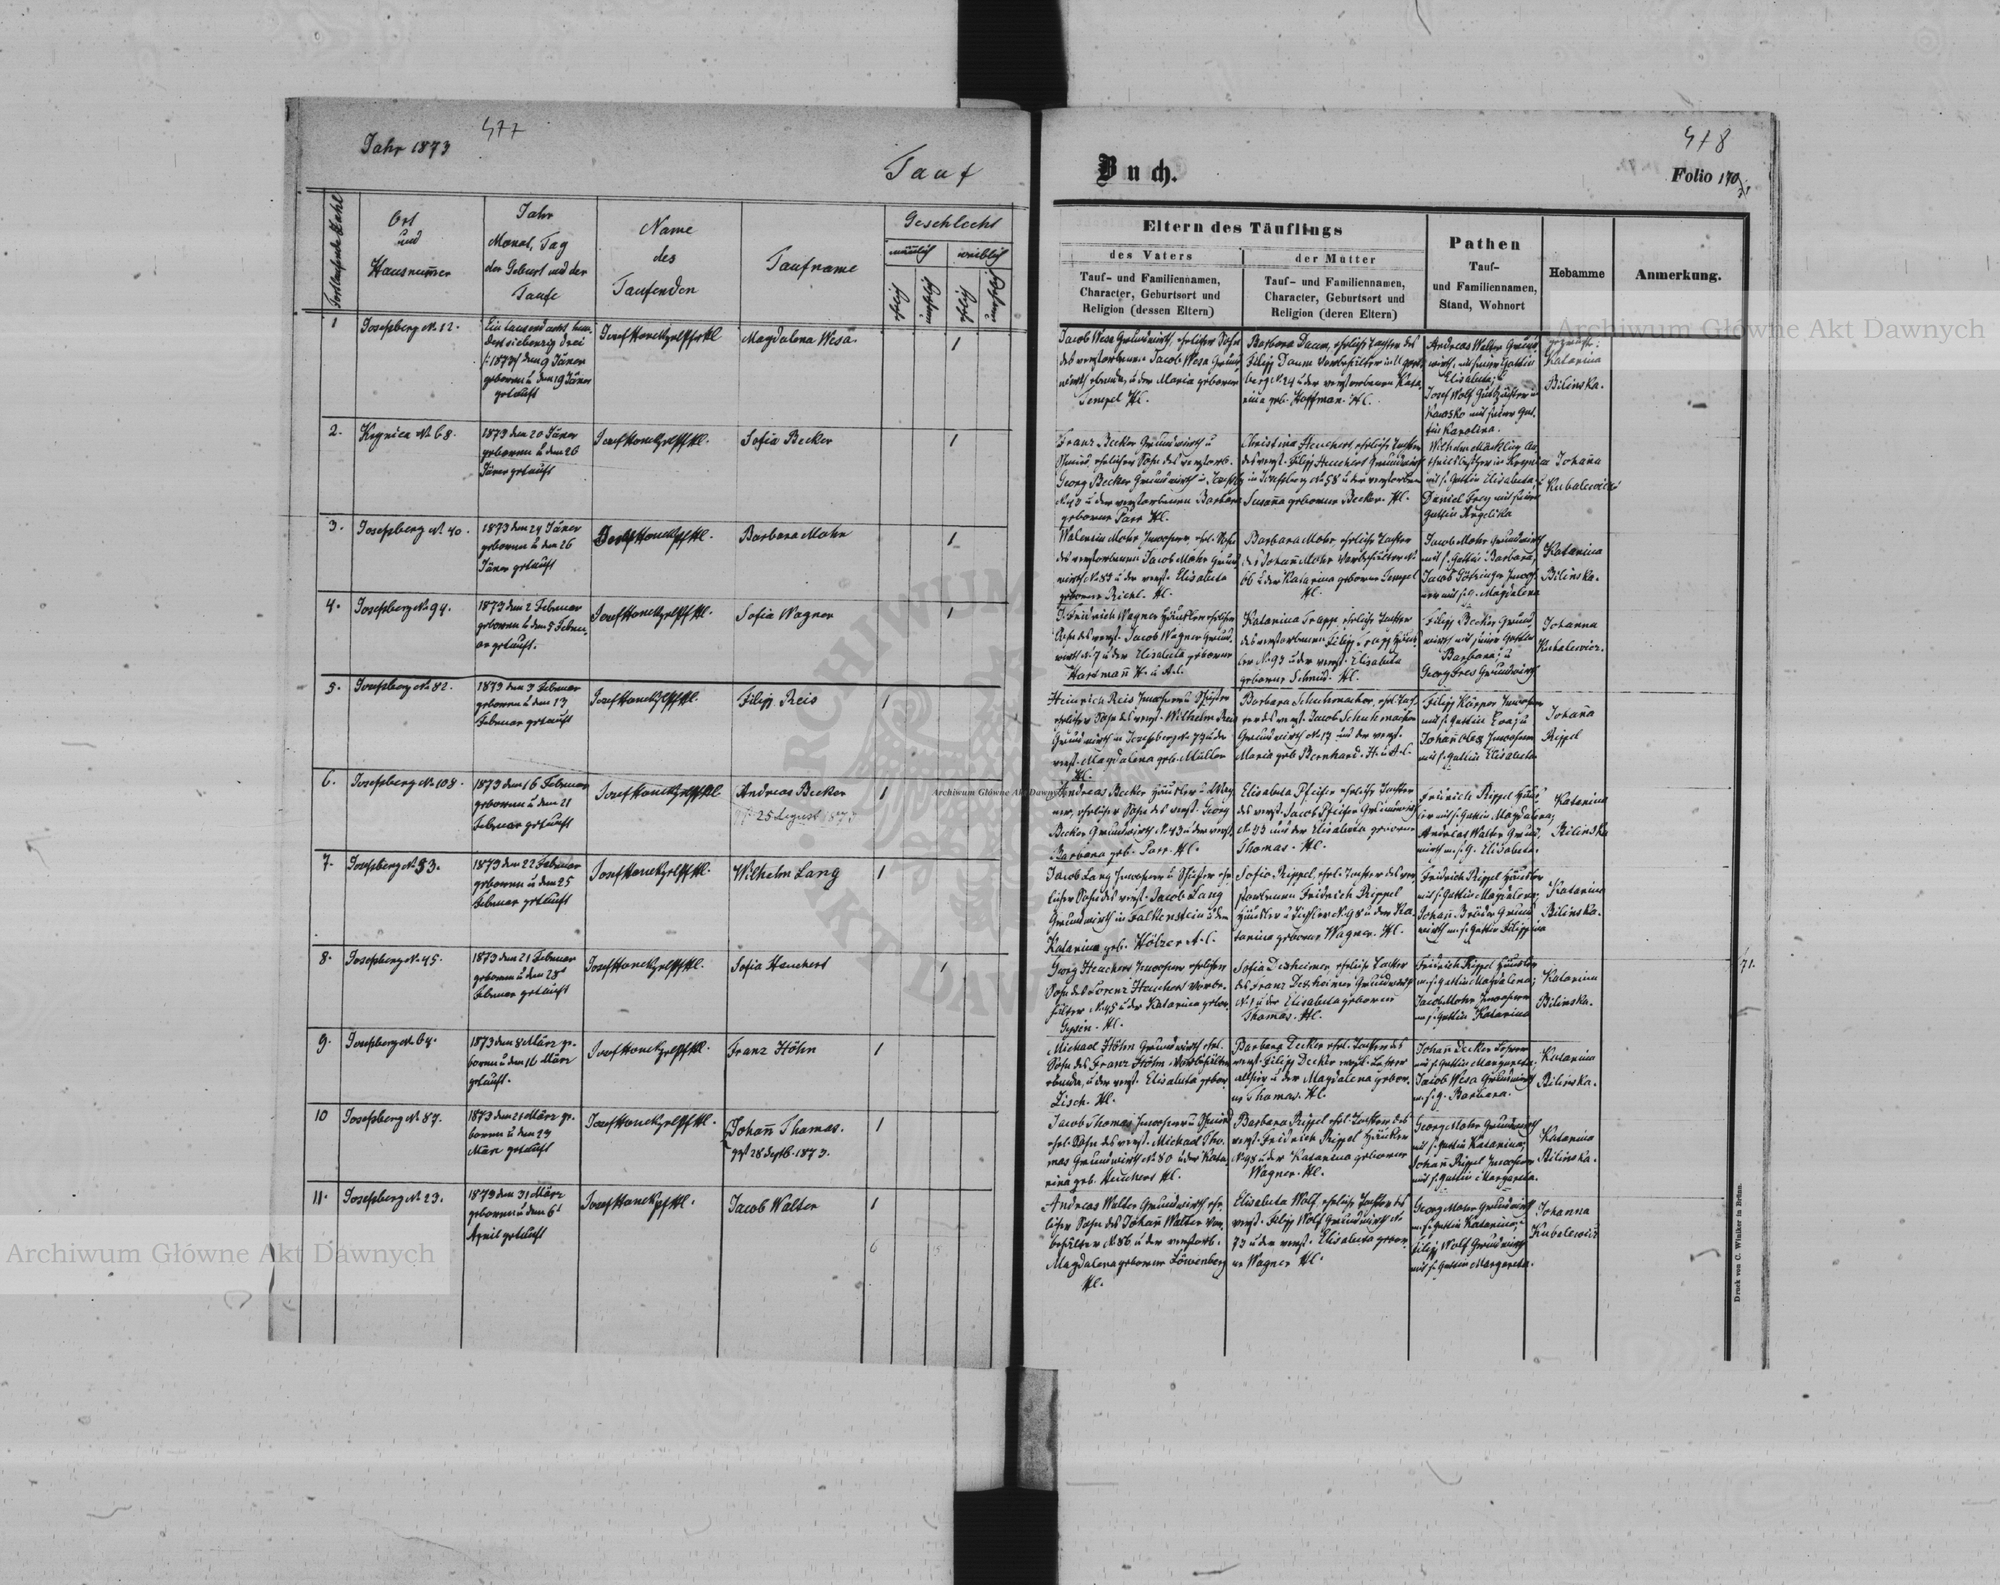 Jahr 1873
477
Tauf
Fortlaufende Zahl
Ort
und
Hausnum̄er
Jahr
Monat, Tag
der Geburt und der
Taufe
Name
des
Taufenden
Taufname
Geschlecht
mänlich
weiblich
1
Josefsberg N. 12.
Ein tausend acht hun-
dert siebenzig drei
/:1873/ den 9 Jäner
geboren u den 19 Jäner
getauft
Josef
Magdalena Wesa.
1
2.
Krynica N. 68.
1873 den 20 Jäner
geboren u den 26
Jäner getauft
Josef
Sofia Becker
1
3.
Josefsberg N. 40.
1873 den 24 Jäner
geboren u den 26
Jäner getauft
Barbara Mohr
1
4.
Josefsberg N. 94.
1873 den 2 Februar
geboren u den 5 Febru-
ar getauft.
Josef
Sofia Wagner
1
5.
Josefsberg N. 82.
1873 den 3 Februar
geboren u den 13
Februar getauft
Josef
Filipp Reis
1
6.
Josefsberg N. 108.
1873 den 16 Februar
geboren u den 21
Februar getauft
Josef
Andreas Becker
25 August 1873
1
7.
Josefsberg N. 53.
1873 den 22 Februar
geboren u den 25
Februar getauft
Josef
Wilhelm Lang
1
8.
Josefsberg N. 45.
1873 den 21 Februar
geboren u den 28
Februar getauft
Josef
Sofia Heuchert
1
9.
Josefsberg N. 64.
1873 den 8 März ge-
boren u den 16 März
getauft.
Josef
Franz Höhn
1
10
Josefsberg N. 87.
1873 den 21 März ge-
boren u den 23
März getauft
Josef
Johan̄ Thomas.
28 Septb. 1873.
1
11.
Josefsberg N. 23.
1873 den 31 März
geboren u den 6
April getauft
Josef
Jacob Walter
1
6
5
478
Buch.
Folio 170
Eltern des Täuflings
des Vaters
Tauf- und Familiennamen,
Character, Geburtsort und
Religion (dessen Eltern)
der Mutter
Tauf- und Familiennamen,
Character, Geburtsort und
Religion (deren Eltern)
Pathen
Tauf-
und Familiennamen,
Stand, Wohnort
Hebamme
Anmerkung.
Jacob Wesa Grundwirth, ehelicher Sohn
des verstorbenen Jacob Wesa Grund-
wirth ebenda, u der Maria geborene
Tempel Hl.
Barbara Daum, eheliche Tochter des
Filipp Daum Vorbehälter in
berg N. 24 u der verstorbenen Kata-
rina geb. Hoffman. Hl.
Andreas Walter Grund-
wirth, mit seiner Gattin
Elisabeta; u
Josef Wolf
mit seiner Gat-
tin Karolina.
geprüfte:
Katarina
Bilinska.
Franz Becker Grundwirth u
Schmied, ehelicher Sohn des verstorb.
Georg Becker Grundwirth
N. 43 u der verstorbenen Barbara
geborene Parr Hl.
Christina Heuchert eheliche Tochter
des verst. Filipp Heuchert Grundwirth
in Josefsberg N. 58 u der verstorbenen
Susan̄a geborene Becker. Hl.
Wilhelm
in Krynica
mit s. Gattin Elisabeta, u
Daniel Frey mit seiner
Gattin Angelika
Johan̄a
Kubalewicz
Valentin Mohr Inwohner, ehel. Sohn
des verstorbenen Jacob Mohr Grund-
wirth N. 83 u der verst. Elisabeta
geborene Richl. Hl.
Barbara Mohr eheliche Tochter
des Johan̄ Mohr Vorbehälter N.
66 u der Katarina geborene Tempel
Hl.
Jacob Mohr Grundwirth
mit s. Gattin Barbara;
Jacob Inwoh-
ner mit s. G. Magdalena
Katarina
Bilinska.
Fridrich Wagner Häusler ehelicher
Sohn des verst. Jacob Wagner Grund-
wirth N. 7 u der Elisabeta geborene
Hartman̄ H. u A.C.
Katarina Trapp, eheliche Tochter
des verstorbenen Filipp Trapp Häus-
ler N. 93 u der verst. Elisabeta
geborene Schmid. Hl.
Filipp Becker Grund-
wirth mit seiner Gattin
Barbara; u
Georg Grundwirth
Johanna
Kubalewicz.
Heinrich Reis Inwohner u
ehelicher Sohn des verst. Wilhelm Reis
Grundwirth in Josefsberg N. 73 u der
verst. Magdalena geb. Müller
Hl.
Barbara Schuhmacher, ehel. Toch-
ter des verst. Jacob Schuhmacher
Grundwirth N. 13 und der verst.
Maria geb. Bernhard. H. u A.C.
Filipp Inwohner
mit s. Gattin Eva; u
Johan̄ Inwohner
mit s. Gattin Elisabeta
Johan̄a
Rippel
Andreas Becker Häusler u
ehelicher Sohn des verst. Georg
Becker Grundwirth N. 43 u der verst.
Barbara geb. Parr. Hl.
Elisabeta Pfeifer eheliche Tochter
des verst. Jacob Pfeifer Grundwirth
N. 33 und der Elisabeta geborene
Thomas. Hl.
Fridrich Rippel Häus-
ler mit s. Gattin Magdalena;
Andreas Walter Grund-
wirth m. s. G. Elisabeta.
Katarina
Bilinska
Jacob Lang Inwohner u ehe-
licher Sohn des verst. Jacob Lang
Grundwirth in Falkenstein u der
Katarina geb. Hölzer A.C.
Sofia Rippel, ehel. Tochter des ver-
storbenen Fridrich Rippel
Häusler u Tischler N. 98 u der Ka-
tarina geborene Wagner. Hl.
Fridrich Rippel Häusler
mit s. Gattin Magdalena;
Johan̄ Bröder Grund-
wirth m. s. Gattin Filippina
Katarina
Bilinska.
Georg Heuchert Inwohner ehelicher
Sohn des Lorenz Heuchert Vorbe-
hälter N. 45 u der Katarina gebor.
Hl.
Sofia Dexheimer, eheliche Tochter
des Franz Dexheimer Grundwirth
N. 1 u der Elisabeta geborene
Thomas. Hl.
Fridrich Rippel Häusler
m. s. Gattin Magdalena;
Jacob Mohr Inwohner
m. s. Gattin Katarina
Katarina
Bilinska.
71.
Michael Höhn Grundwirth ehel.
Sohn des Franz Höhn Vorbehälter
ebenda, u der verst. Elisabeta gebor.
Lisch. Hl.
Barbara Decker ehel. Tochter des
verst. Filipp Decker Lehrer
allhier u der Magdalena gebore-
ne Thomas. Hl.
Johan̄ Decker Lehrer
mit s. Gattin Margareta;
Jacob Wesa Grundwirth
m. s. G. Barbara.
Katarina
Bilinska.
Jacob Thomas Inwohner u Schmied
ehel. Sohn des verst. Michael Tho-
mas Grundwirth N. 80 u der Kata-
rina geb. Heuchert Hl.
Barbara Rippel ehel. Tochter des
verst. Fridrich Rippel Häusler
N. 98 u der Katarina geborene
Wagner. Hl.
Georg Mohr Grundwirth
mit s. Gattin Katarina;
Johan̄ Rippel Inwohner
mit s. Gattin Margareta.
Katarina
Bilinska.
Andreas Walter Grundwirth ehe-
licher Sohn des Johan̄ Walter Vor-
behälter N. 86 u der verstorb.
Magdalena geborene Löwenberg
Hl.
Elisabeta Wolf, eheliche Tochter des
verst. Filipp Wolf Grundwirth N.
73 u der verst. Elisabeta gebore-
ne Wagner Hl.
Georg Mohr Grundwirth
m. s. Gattin Katarina;
Filipp Wolf Grundwirth
mit s. Gattin Margareta.
Johanna
Kubalewicz
Druck von C. Winiker in Brünn.
Archiwum Główne Akt Dawnych
Archiwum Główne Akt Dawnych
Archiwum Główne Akt Dawnych